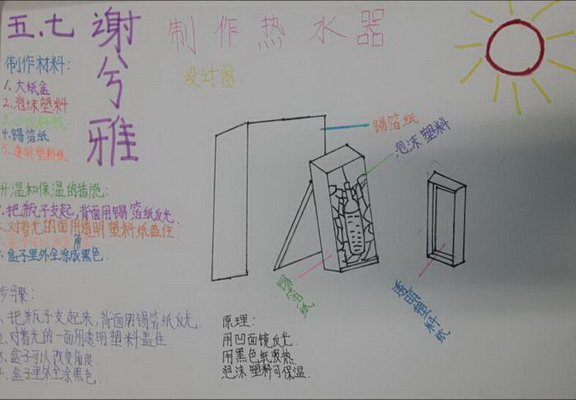 五.七 谢兮雅
制作热水器
制作材料:
1.大纸盒
2.泡沫塑料
4.锡箔纸
5.透明塑料纸
设计图:
锡箔纸
泡沫塑料
锡箔纸
透明塑料纸
升温和保温的措施:
1.把板子支起,背面用锡箔纸反光.
2.对着光的面用透明塑料纸盖住.
4.盒子里外全涂成黑色.
步骤:
1.把板子支起来,背面用锡箔纸反光.
2.对着光的一面用透明塑料盖住
3.盒子可以改变角度
4.盒子里外全涂黑色.
原理:
用凹面镜反光.
用黑色纸吸热
泡沫塑料可保温.